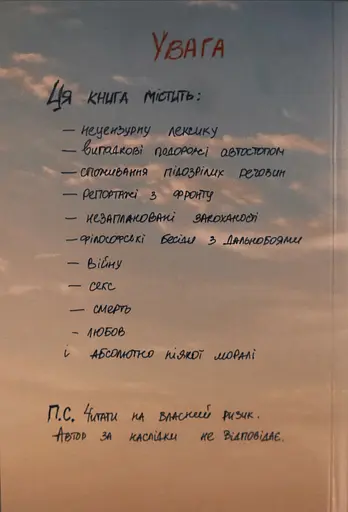 УВАГА
ЦЯ КНИГА МІСТИТЬ:
— НЕЦЕНЗУРНУ ЛЕКСИКУ
— ВИПАДКОВІ ПОДОРОЖІ АВТОСТОПОМ
— СПОЖИВАННЯ ПІДОЗРІЛИХ РЕЧОВИН
— РЕПОРТАЖІ З ФРОНТУ
— НЕЗАПЛАНОВАНІ ЗАКОХАНОСТІ
— ФІЛОСОФСЬКІ БЕСІДИ З ДАЛЬНОБОЯМИ
— ВІЙНУ
— СЕКС
— СМЕРТЬ
- ЛЮБОВ
І АБСОЛЮТНО НІЯКОЇ МОРАЛІ
П.С. ЧИТАТИ НА ВЛАСНИЙ РИЗИК.
АВТОР ЗА НАСЛІДКИ НЕ ВІДПОВІДАЄ.